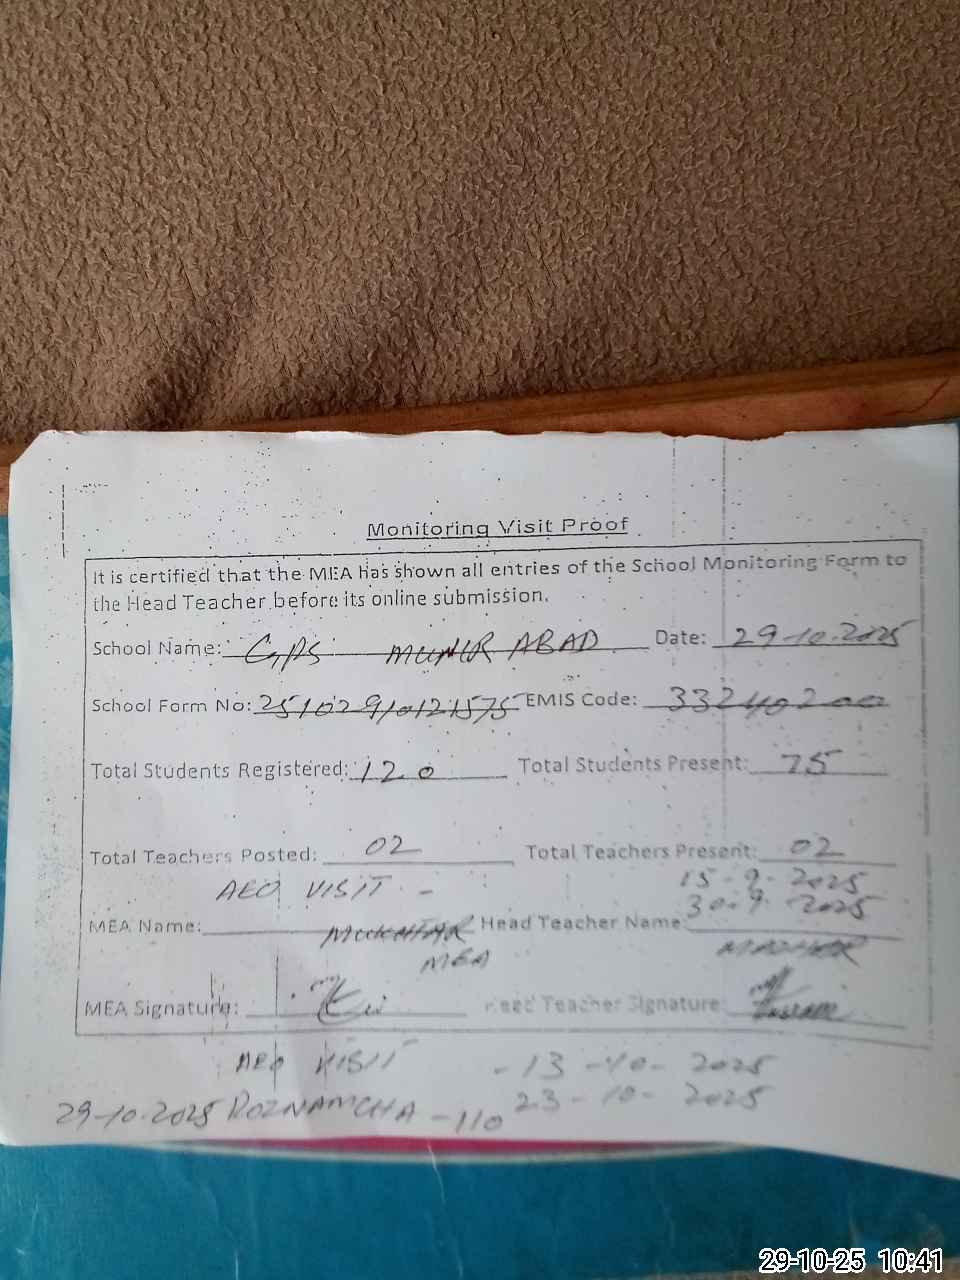 Monitoring Visit Proof
It is certified that the MEA has shown all entries of the School Monitoring Form to
the Head Teacher before its online submission.
School Name: GPS MUNIR ABAD Date: 29-10-2025
School Form No: 2510291012 1575 EMIS Code: 33240200
Total Students Registered: 120 Total Students Present: 75
Total Teachers Posted: 02 Total Teachers Present: 02
AEO VISIT - 15-9-2025
30-9-2025
MEA Name: MUKHTAR Head Teacher Name:
MEA
MEA Signature: Head Teacher Signature:
AEO VISIT - 13-10-2025
23-10-2025
29-10-2025 ROZNAMCHA - 110
29-10-25 10:41